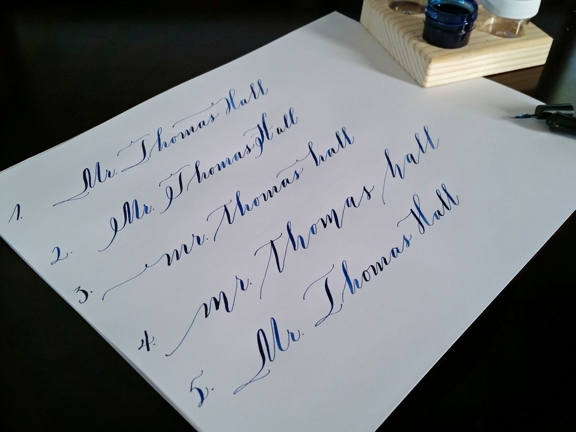 1. Mr. Thomas Hall
2. Mr. Thomas Hall
3. mr. Thomas hall
4. mr. Thomas hall
5. Mr. Thomas Hall